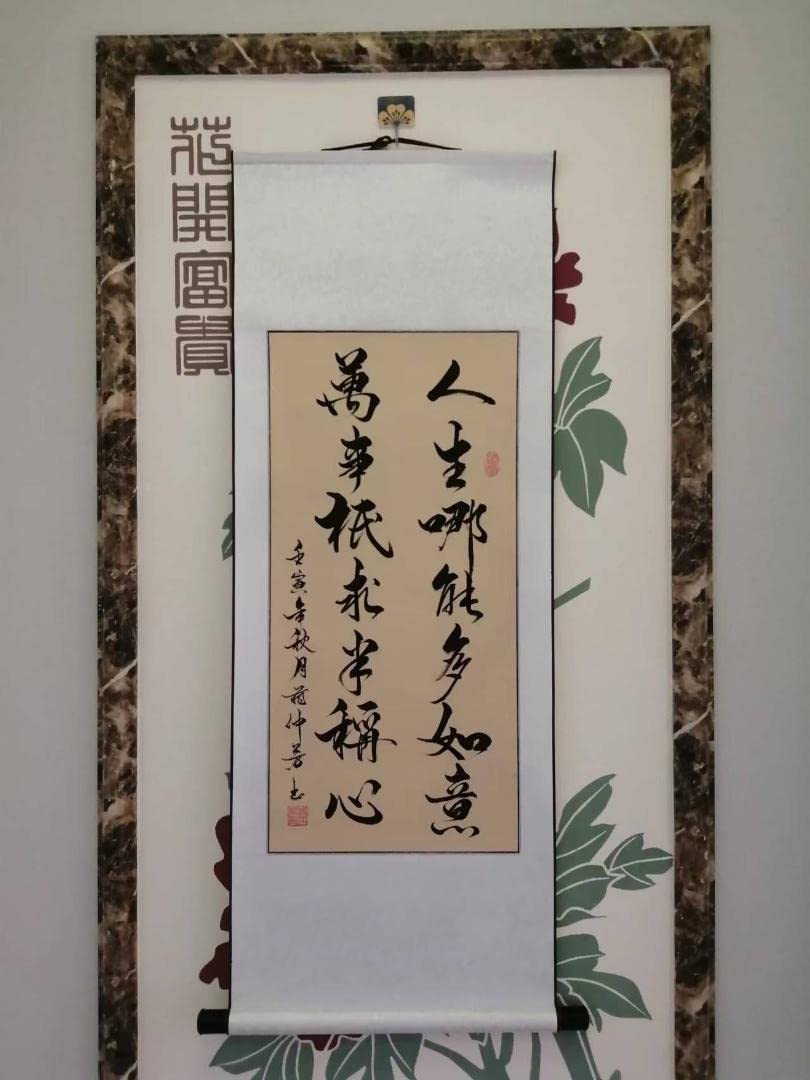 人生哪能多如意
萬事祇求半稱心
壬寅年秋月蔣仲芳书
花開富貴